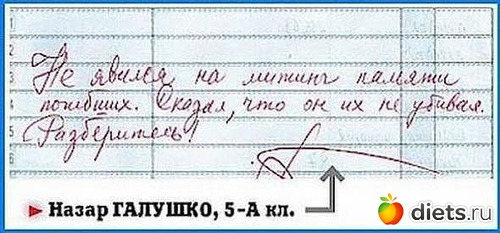 Не явился на митинг памяти
погибших. Сказал, что он их не убивал.
Разберитесь!
Назар ГАЛУШКО, 5-А кл.
diets.ru